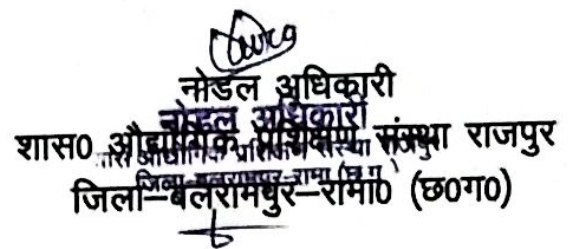 नोडल अधिकारी
नोडल अधिकारी
शास0 औद्योगिक प्रशिक्षण संस्था राजपुर
जिला–बलरामपुर–रामा0 (छ0ग0)